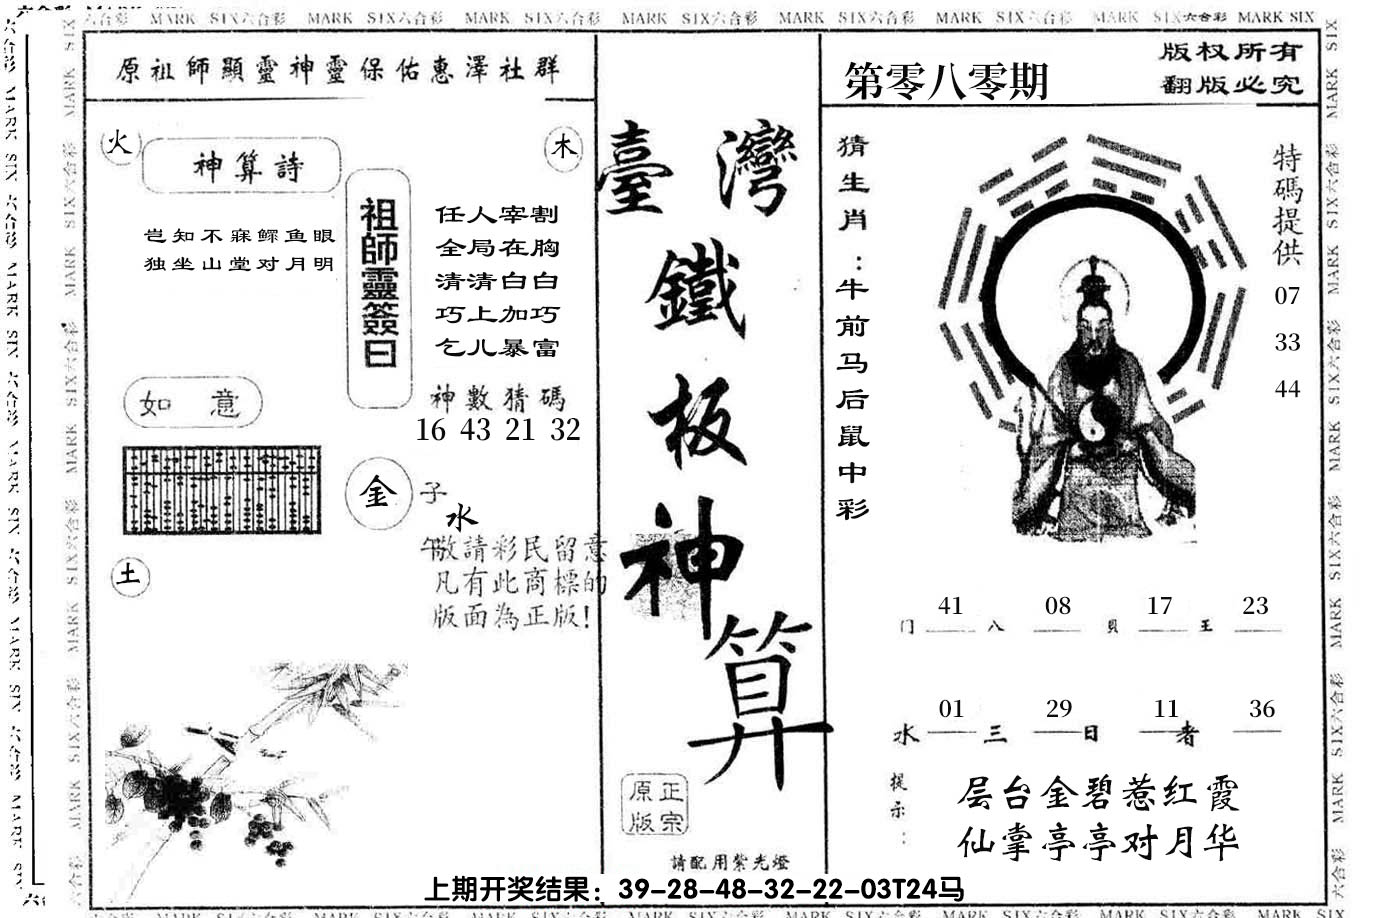 MARK SIX六合彩 MARK SIX六合彩 MARK SIX六合彩 MARK SIX六合彩 MARK SIX六合彩 MARK SIX六合彩 MARK SIX六合彩 MARK SIX
原祖師顯靈神靈保佑惠澤社群
火
神算詩
木
岂知不寐鳏鱼眼
独坐山堂对月明
祖師靈簽曰
任人宰割
全局在胸
清清白白
巧上加巧
乞儿暴富
神數猜碼
16 43 21 32
如意
金
子
水
午
敬請彩民留意
凡有此商標的
版面為正版!
土
臺灣
鐵
板
神
算
正宗
原版
請配用紫光燈
第零八零期
版权所有
翻版必究
猜生肖:牛前马后鼠中彩
特碼提供
07
33
44
41 08 17 23
门 八 貝 王
01 29 11 36
水 三 日 者
提示:
层台金碧惹红霞
仙掌亭亭对月华
上期开奖结果：39-28-48-32-22-03T24马